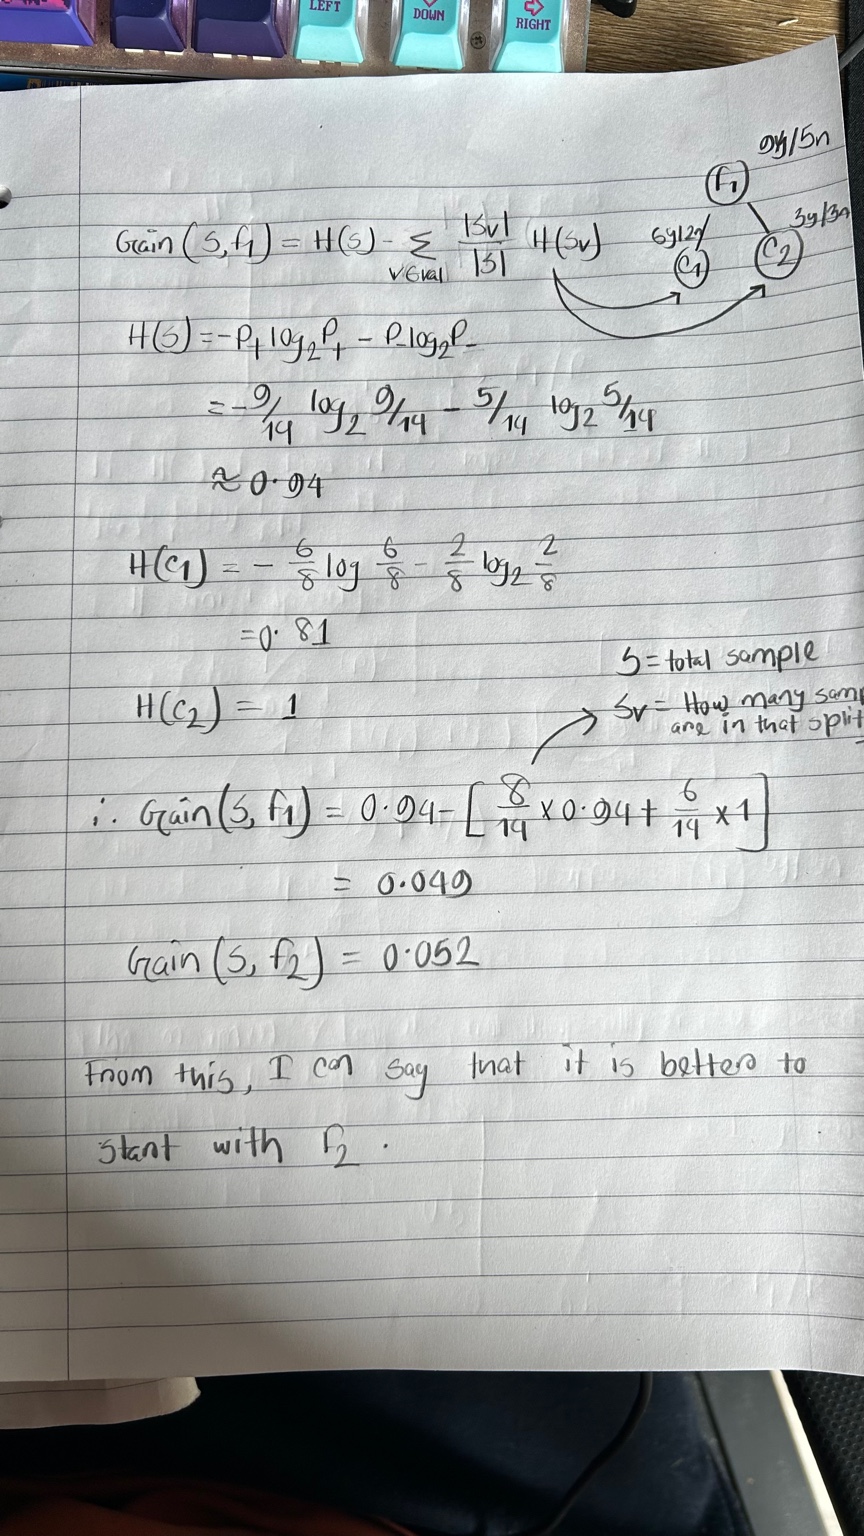 LEFT
DOWN
RIGHT
9y/5n
f1
Gain (S, f1) = H(S) - Σ v∈val |Sv|/|S| H(Sv)
6y|2n
3y/3n
C1
C2
H(S) = -P+ log2 P+ - P- log2 P-
= -9/14 log2 9/14 - 5/14 log2 5/14
≈ 0.94
H(C1) = - 6/8 log 6/8 - 2/8 log2 2/8
= 0.81
S = total sample
H(C2) = 1
Sv = How many sam
are in that split
∴ Gain (S, f1) = 0.94 - [8/14 x 0.94 + 6/14 x 1]
= 0.049
Gain (S, f2) = 0.052
From this, I can say that it is better to
start with f2.